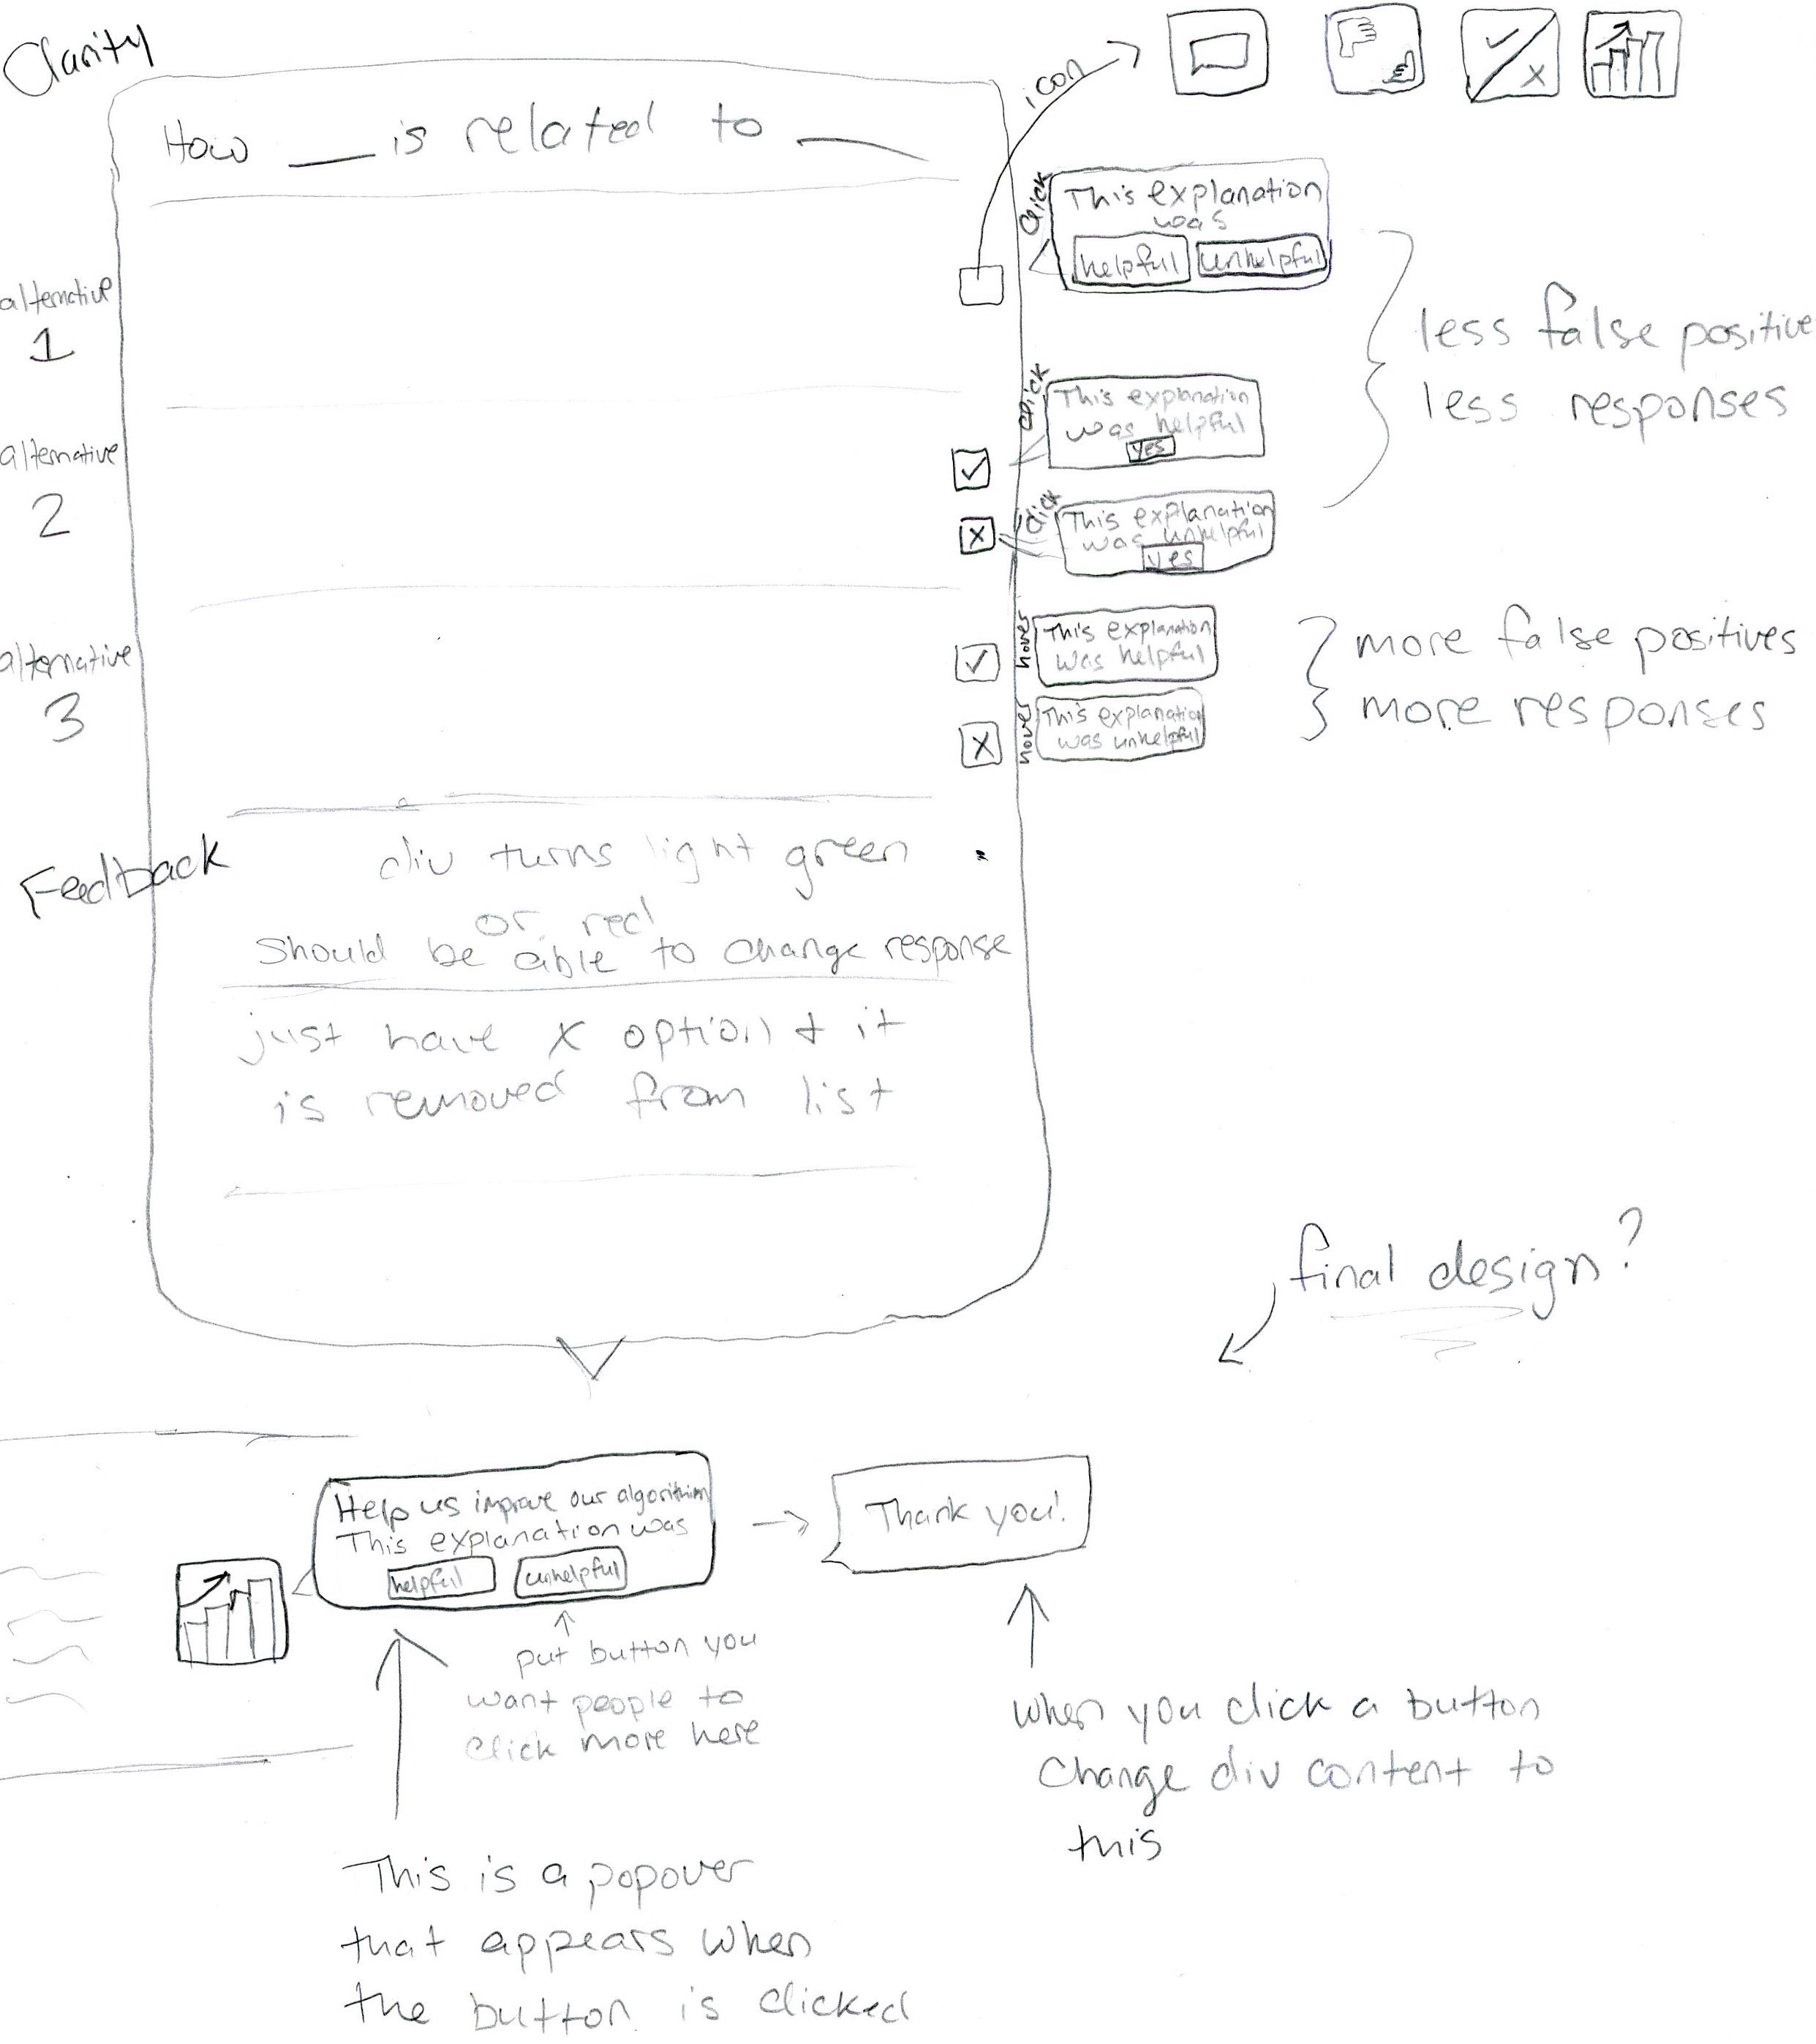 Clarity
How ___ is related to ___
icon
✓
x
alternative
1
click
This explanation
was
helpful unhelpful
less false positive
less responses
alternative
2
✓
click
This explanation
was helpful
yes
x
click
This explanation
was unhelpful
yes
alternative
3
✓
hover
This explanation
was helpful
x
hover
This explanation
was unhelpful
more false positives
more responses
Feedback
div turns light green
or red
should be able to change response
just have x option + it
is removed from list
final design?
Help us improve our algorithm
This explanation was
helpful unhelpful
Thank you!
put button you
want people to
click more here
when you click a button
change div content to
this
This is a popover
that appears when
the button is clicked